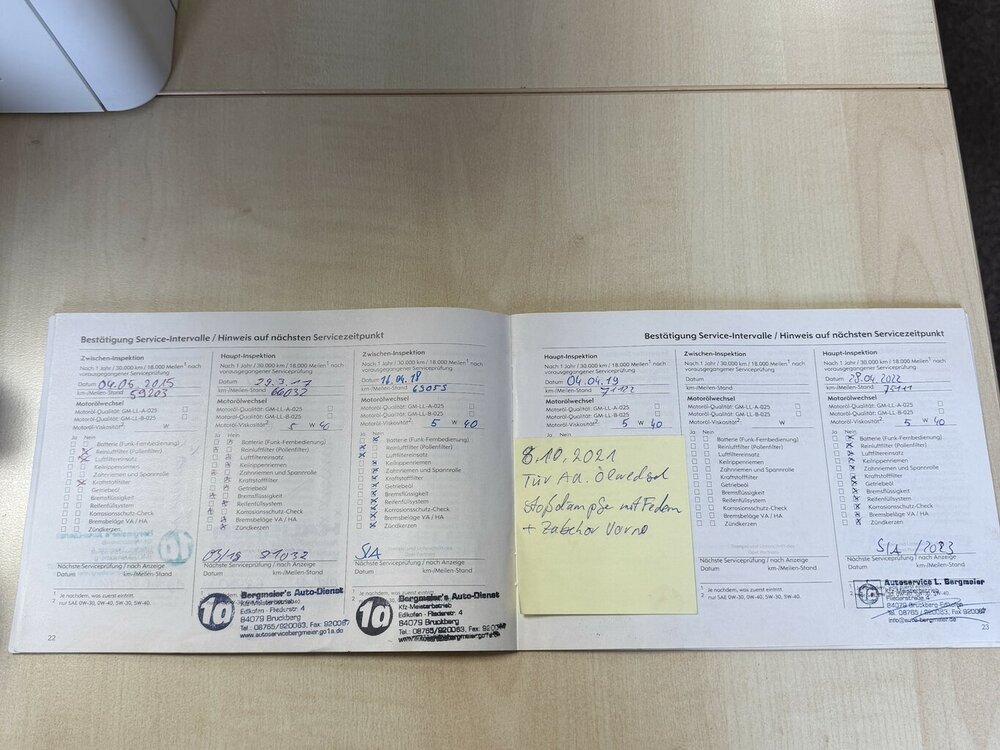 Bestätigung Service-Intervalle / Hinweis auf nächsten Servicezeitpunkt
Zwischen-Inspektion
Nach 1 Jahr / 30.000 km / 18.000 Meilen¹ nach
vorausgegangener Serviceprüfung
Datum 04.05.2015
km-/Meilen-Stand 59203
Motorölwechsel
Motoröl-Qualität: GM-LL-A-025
Motoröl-Qualität: GM-LL-B-025
Motoröl-Viskosität²: W
Ja Nein
Batterie (Funk-Fernbedienung)
Reinluftfilter (Pollenfilter)
Luftfiltereinsatz
Keilrippenriemen
Zahnriemen und Spannrolle
Kraftstofffilter
Getriebeöl
Bremsflüssigkeit
Reifenfüllsystem
Korrosionsschutz-Check
Bremsbeläge VA / HA
Zündkerzen
Nächste Serviceprüfung / nach Anzeige
Datum km-/Meilen-Stand
1 Je nachdem, was zuerst eintritt.
2 nur SAE 0W-30, 0W-40, 5W-30, 5W-40.
22
Haupt-Inspektion
Nach 1 Jahr / 30.000 km / 18.000 Meilen¹ nach
vorausgegangener Serviceprüfung
Datum 29.3.17
km-/Meilen-Stand 66032
Motorölwechsel
Motoröl-Qualität: GM-LL-A-025
Motoröl-Qualität: GM-LL-B-025
Motoröl-Viskosität²: 5 W 40
Ja Nein
Batterie (Funk-Fernbedienung)
Reinluftfilter (Pollenfilter)
Luftfiltereinsatz
Keilrippenriemen
Zahnriemen und Spannrolle
Kraftstofffilter
Getriebeöl
Bremsflüssigkeit
Reifenfüllsystem
Korrosionsschutz-Check
Bremsbeläge VA / HA
Zündkerzen
03/18
Nächste Serviceprüfung / nach Anzeige
Datum km-/Meilen-Stand
10
Bergmeier's Auto-Dienst
Kfz-Meisterbetrieb
Edlkofen - Riederstr. 4
84079 Bruckberg
Tel.: 08765/920063, Fax: 920067
www.autoservicebergmeier.go1a.de
Zwischen-Inspektion
Nach 1 Jahr / 30.000 km / 18.000 Meilen¹ nach
vorausgegangener Serviceprüfung
Datum 16.04.18
km-/Meilen-Stand 63055
Motorölwechsel
Motoröl-Qualität: GM-LL-A-025
Motoröl-Qualität: GM-LL-B-025
Motoröl-Viskosität²: 5 W 40
Ja Nein
Batterie (Funk-Fernbedienung)
Reinluftfilter (Pollenfilter)
Luftfiltereinsatz
Keilrippenriemen
Zahnriemen und Spannrolle
Kraftstofffilter
Getriebeöl
Bremsflüssigkeit
Reifenfüllsystem
Korrosionsschutz-Check
Bremsbeläge VA / HA
Zündkerzen
SIA
Nächste Serviceprüfung / nach Anzeige
Datum km-/Meilen-Stand
10
Bergmeier's Auto-Dienst
Kfz-Meisterbetrieb
Edlkofen - Riederstr. 4
84079 Bruckberg
Tel.: 08765/920063, Fax: 920067
Bestätigung Service-Intervalle / Hinweis auf nächsten Servicezeitpunkt
Haupt-Inspektion
Nach 1 Jahr / 30.000 km / 18.000 Meilen¹ nach
vorausgegangener Serviceprüfung
Datum 04.04.19
km-/Meilen-Stand
Motorölwechsel
Motoröl-Qualität: GM-LL-A-025
Motoröl-Qualität: GM-LL-B-025
Motoröl-Viskosität²: 5 W 40
Ja Nein
8.10.2021
Tür Ad. Ölwechsel
Stoßdämpfer mit Federn
+ Zubehör Vorne
Zwischen-Inspektion
Nach 1 Jahr / 30.000 km / 18.000 Meilen¹ nach
vorausgegangener Serviceprüfung
Datum
km-/Meilen-Stand
Motorölwechsel
Motoröl-Qualität: GM-LL-A-025
Motoröl-Qualität: GM-LL-B-025
Motoröl-Viskosität²: W
Ja Nein
Batterie (Funk-Fernbedienung)
Reinluftfilter (Pollenfilter)
Luftfiltereinsatz
Keilrippenriemen
Zahnriemen und Spannrolle
Kraftstofffilter
Getriebeöl
Bremsflüssigkeit
Reifenfüllsystem
Korrosionsschutz-Check
Bremsbeläge VA / HA
Zündkerzen
Nächste Serviceprüfung / nach Anzeige
Datum km-/Meilen-Stand
1 Je nachdem, was zuerst eintritt.
2 nur SAE 0W-30, 0W-40, 5W-30, 5W-40.
Haupt-Inspektion
Nach 1 Jahr / 30.000 km / 18.000 Meilen¹ nach
vorausgegangener Serviceprüfung
Datum 28.04.2022
km-/Meilen-Stand 75111
Motorölwechsel
Motoröl-Qualität: GM-LL-A-025
Motoröl-Qualität: GM-LL-B-025
Motoröl-Viskosität²: 5 W 40
Ja Nein
Batterie (Funk-Fernbedienung)
Reinluftfilter (Pollenfilter)
Luftfiltereinsatz
Keilrippenriemen
Zahnriemen und Spannrolle
Kraftstofffilter
Getriebeöl
Bremsflüssigkeit
Reifenfüllsystem
Korrosionsschutz-Check
Bremsbeläge VA / HA
Zündkerzen
SIA /2023
Nächste Serviceprüfung / nach Anzeige
Datum km-/Meilen-Stand
Autoservice L. Bergmeier
Kfz-Meisterbetrieb
Riederstraße 4
84079 Bruckberg
Tel. 08765 / 920063, Fax 920067
info@auto-bergmeier.de
23